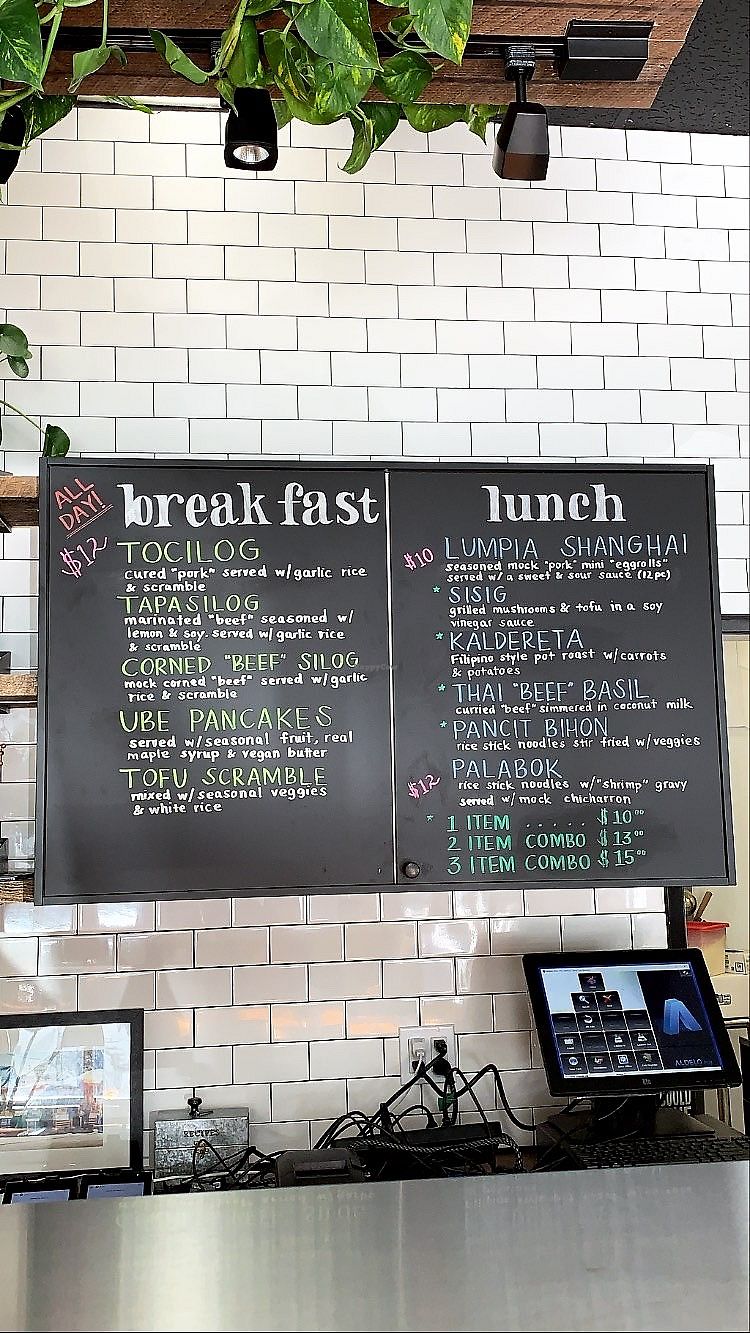 ALL
DAY!
breakfast
$12
TOCILOG
cured "pork" served w/garlic rice
& scramble
TAPASILOG
marinated "beef" seasoned w/
lemon & soy. served w/garlic rice
& scramble
CORNED "BEEF" SILOG
mock corned "beef" served w/garlic
rice & scramble
UBE PANCAKES
served w/seasonal fruit, real
maple syrup & vegan butter
TOFU SCRAMBLE
mixed w/seasonal veggies
& white rice
lunch
$10 LUMPIA SHANGHAI
seasoned mock "pork" mini "eggrolls"
served w/ a sweet & sour sauce (12pc)
* SISIG
grilled mushrooms & tofu in a soy
vinegar sauce
* KALDERETA
Filipino style pot roast w/carrots
& potatoes
* THAI "BEEF" BASIL
curried "beef" simmered in coconut milk
* PANCIT BIHON
rice stick noodles stir fried w/veggies
PALABOK
$12 rice stick noodles w/"shrimp" gravy
served w/ mock chicharron
* 1 ITEM ..... $10.00
2 ITEM COMBO $13.00
3 ITEM COMBO $15.00
RECIPES
ALDELO